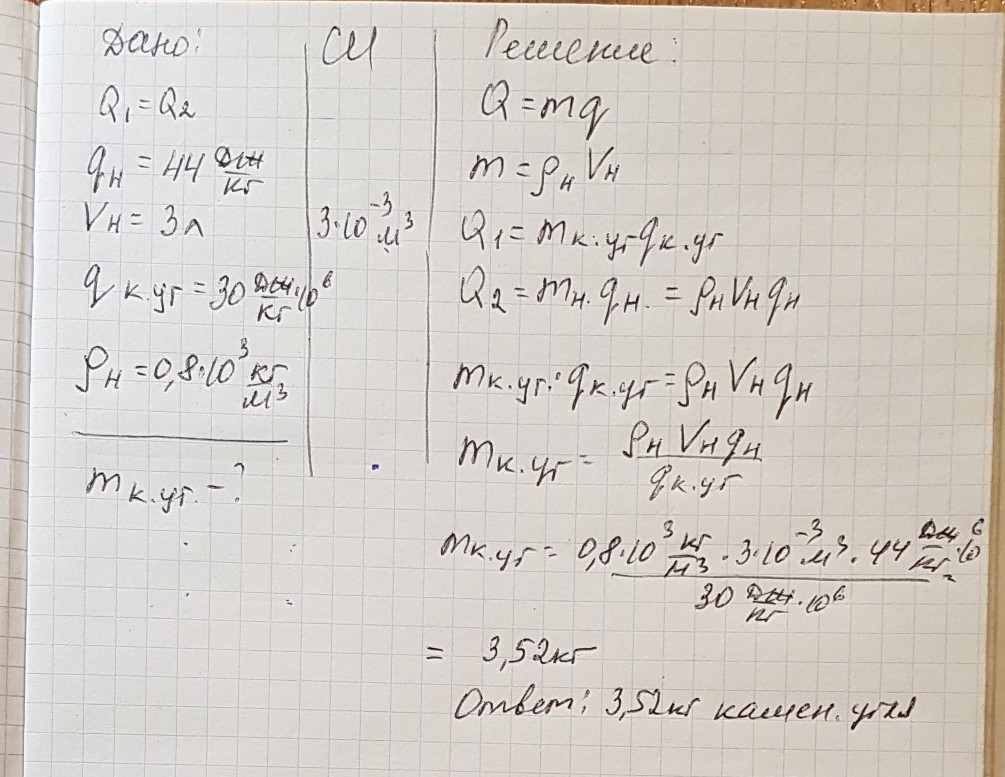 Дано:
Q₁ = Q₂
qн = 44 Дж/кг
Vн = 3л
q к.уг = 30 Дж/кг · 10⁶
ρн = 0,8·10³ кг/м³
m к.уг. - ?
СИ
3·10⁻³ м³
Решение:
Q = mq
m = ρн Vн
Q₁ = m к.уг q к.уг
Q₂ = mн. qн. = ρн Vн qн
m к.уг. · q к.уг = ρн Vн qн
m к.уг = ρн Vн qн / q к.уг
m к.уг = 0,8·10³ кг/м³ · 3·10⁻³ м³ · 44 Дж/кг · 10⁶ / 30 Дж/кг · 10⁶ =
= 3,52кг
Ответ: 3,52кг камен. угля